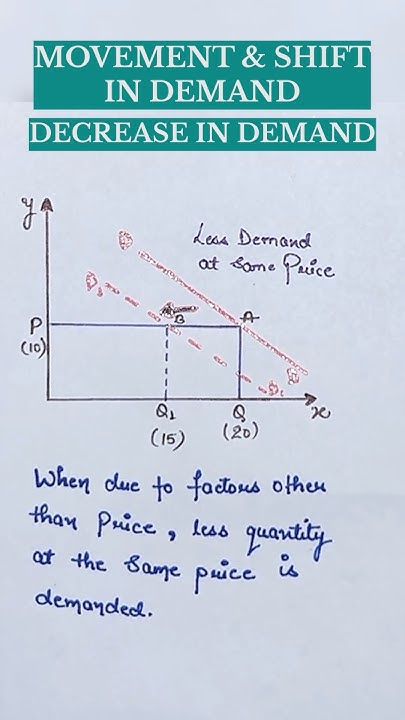 MOVEMENT & SHIFT
IN DEMAND
DECREASE IN DEMAND
y
Less Demand
at Same Price
D
D1
P
B
A
(10)
D1
D
Q1
Q
x
(15)
(20)
When due to factors other
than Price, less quantity
at the same price is
demanded.